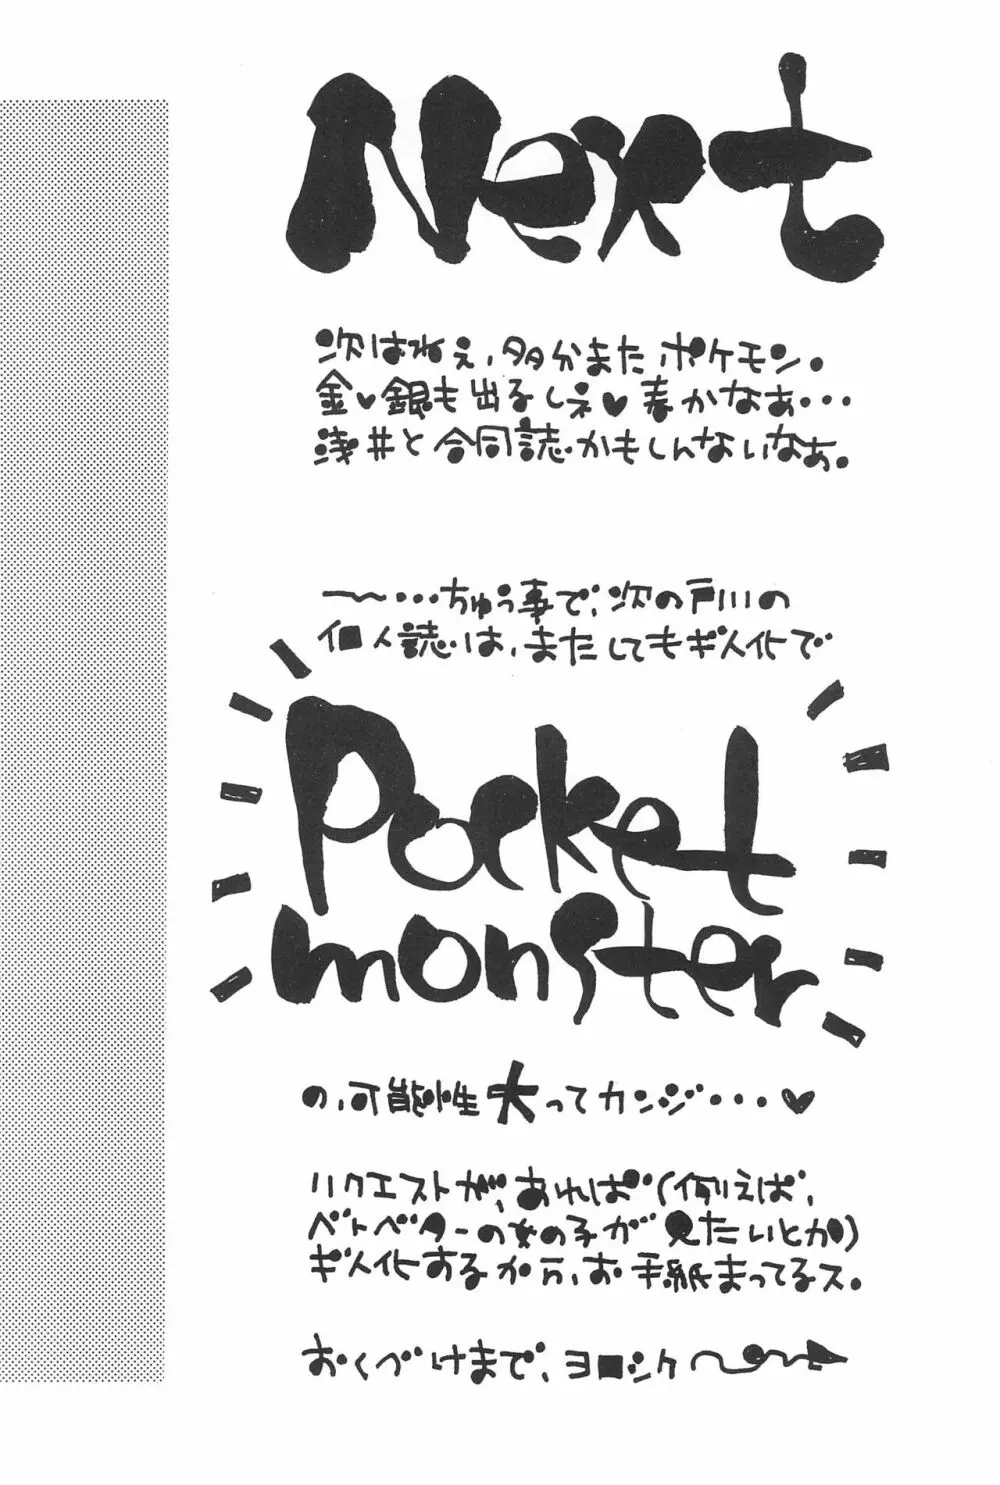 Next
次はねぇ、多分またポケモン。
金♥銀も出るしネ♥春かなぁ・・・
浅井と合同誌かもしんないなぁ。
〜〜・・・ちゅう事で、次の戸川の
個人誌は、またしてもギ人化で
Pocket
monster
の、可能性大ってカンジ・・・♥
リクエストが、あれば(例えば、
ベトベターの女の子が見たいとか)
ギ人化するから、お手紙まってるス。
おくづけまで、ヨロシク